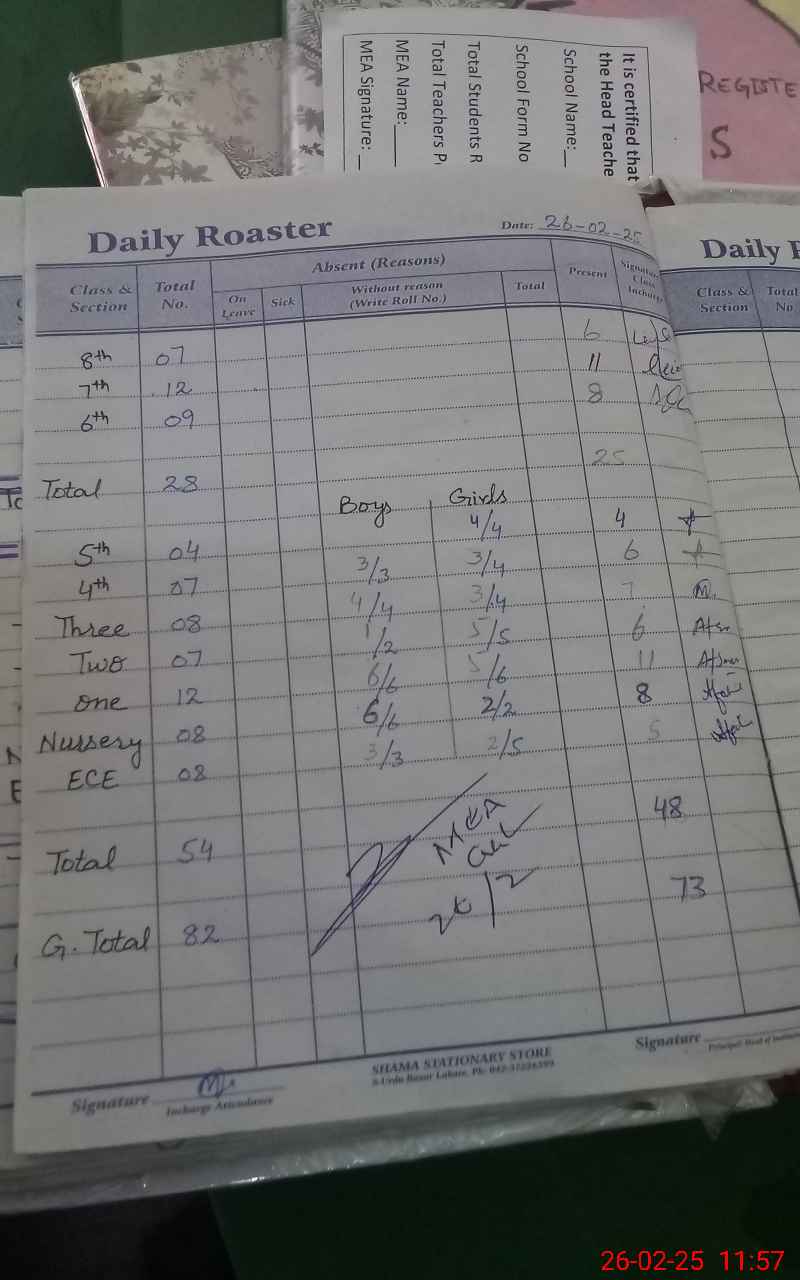 It is certified that
the Head Teache
School Name:_
School Form No
Total Students R
Total Teachers P
MEA Name:____
MEA Signature: _
REGISTE
S
Daily Roaster
Date: 26-02-25
Class & Section Total No. Absent (Reasons) On Leave Sick Without reason (Write Roll No.) Total Present Signature Class Incharge
8th 07 6
7th 12 11
6th 09 8
Total 28 25
Boys Girls
5th 04 4/4 4
4th 07 3/3 3/4 6
Three 08 4/4 3/4 7
Two 07 1/2 5/5 6
One 12 6/6 5/6 11
Nursery 08 6/6 2/2 8
ECE 08 3/3 2/5 5
Total 54 48
G. Total 82 73
MEA
26/2
Signature
Incharge Attendance
SHAMA STATIONARY STORE
Signature
Daily R
Class & Section Total No
26-02-25 11:57